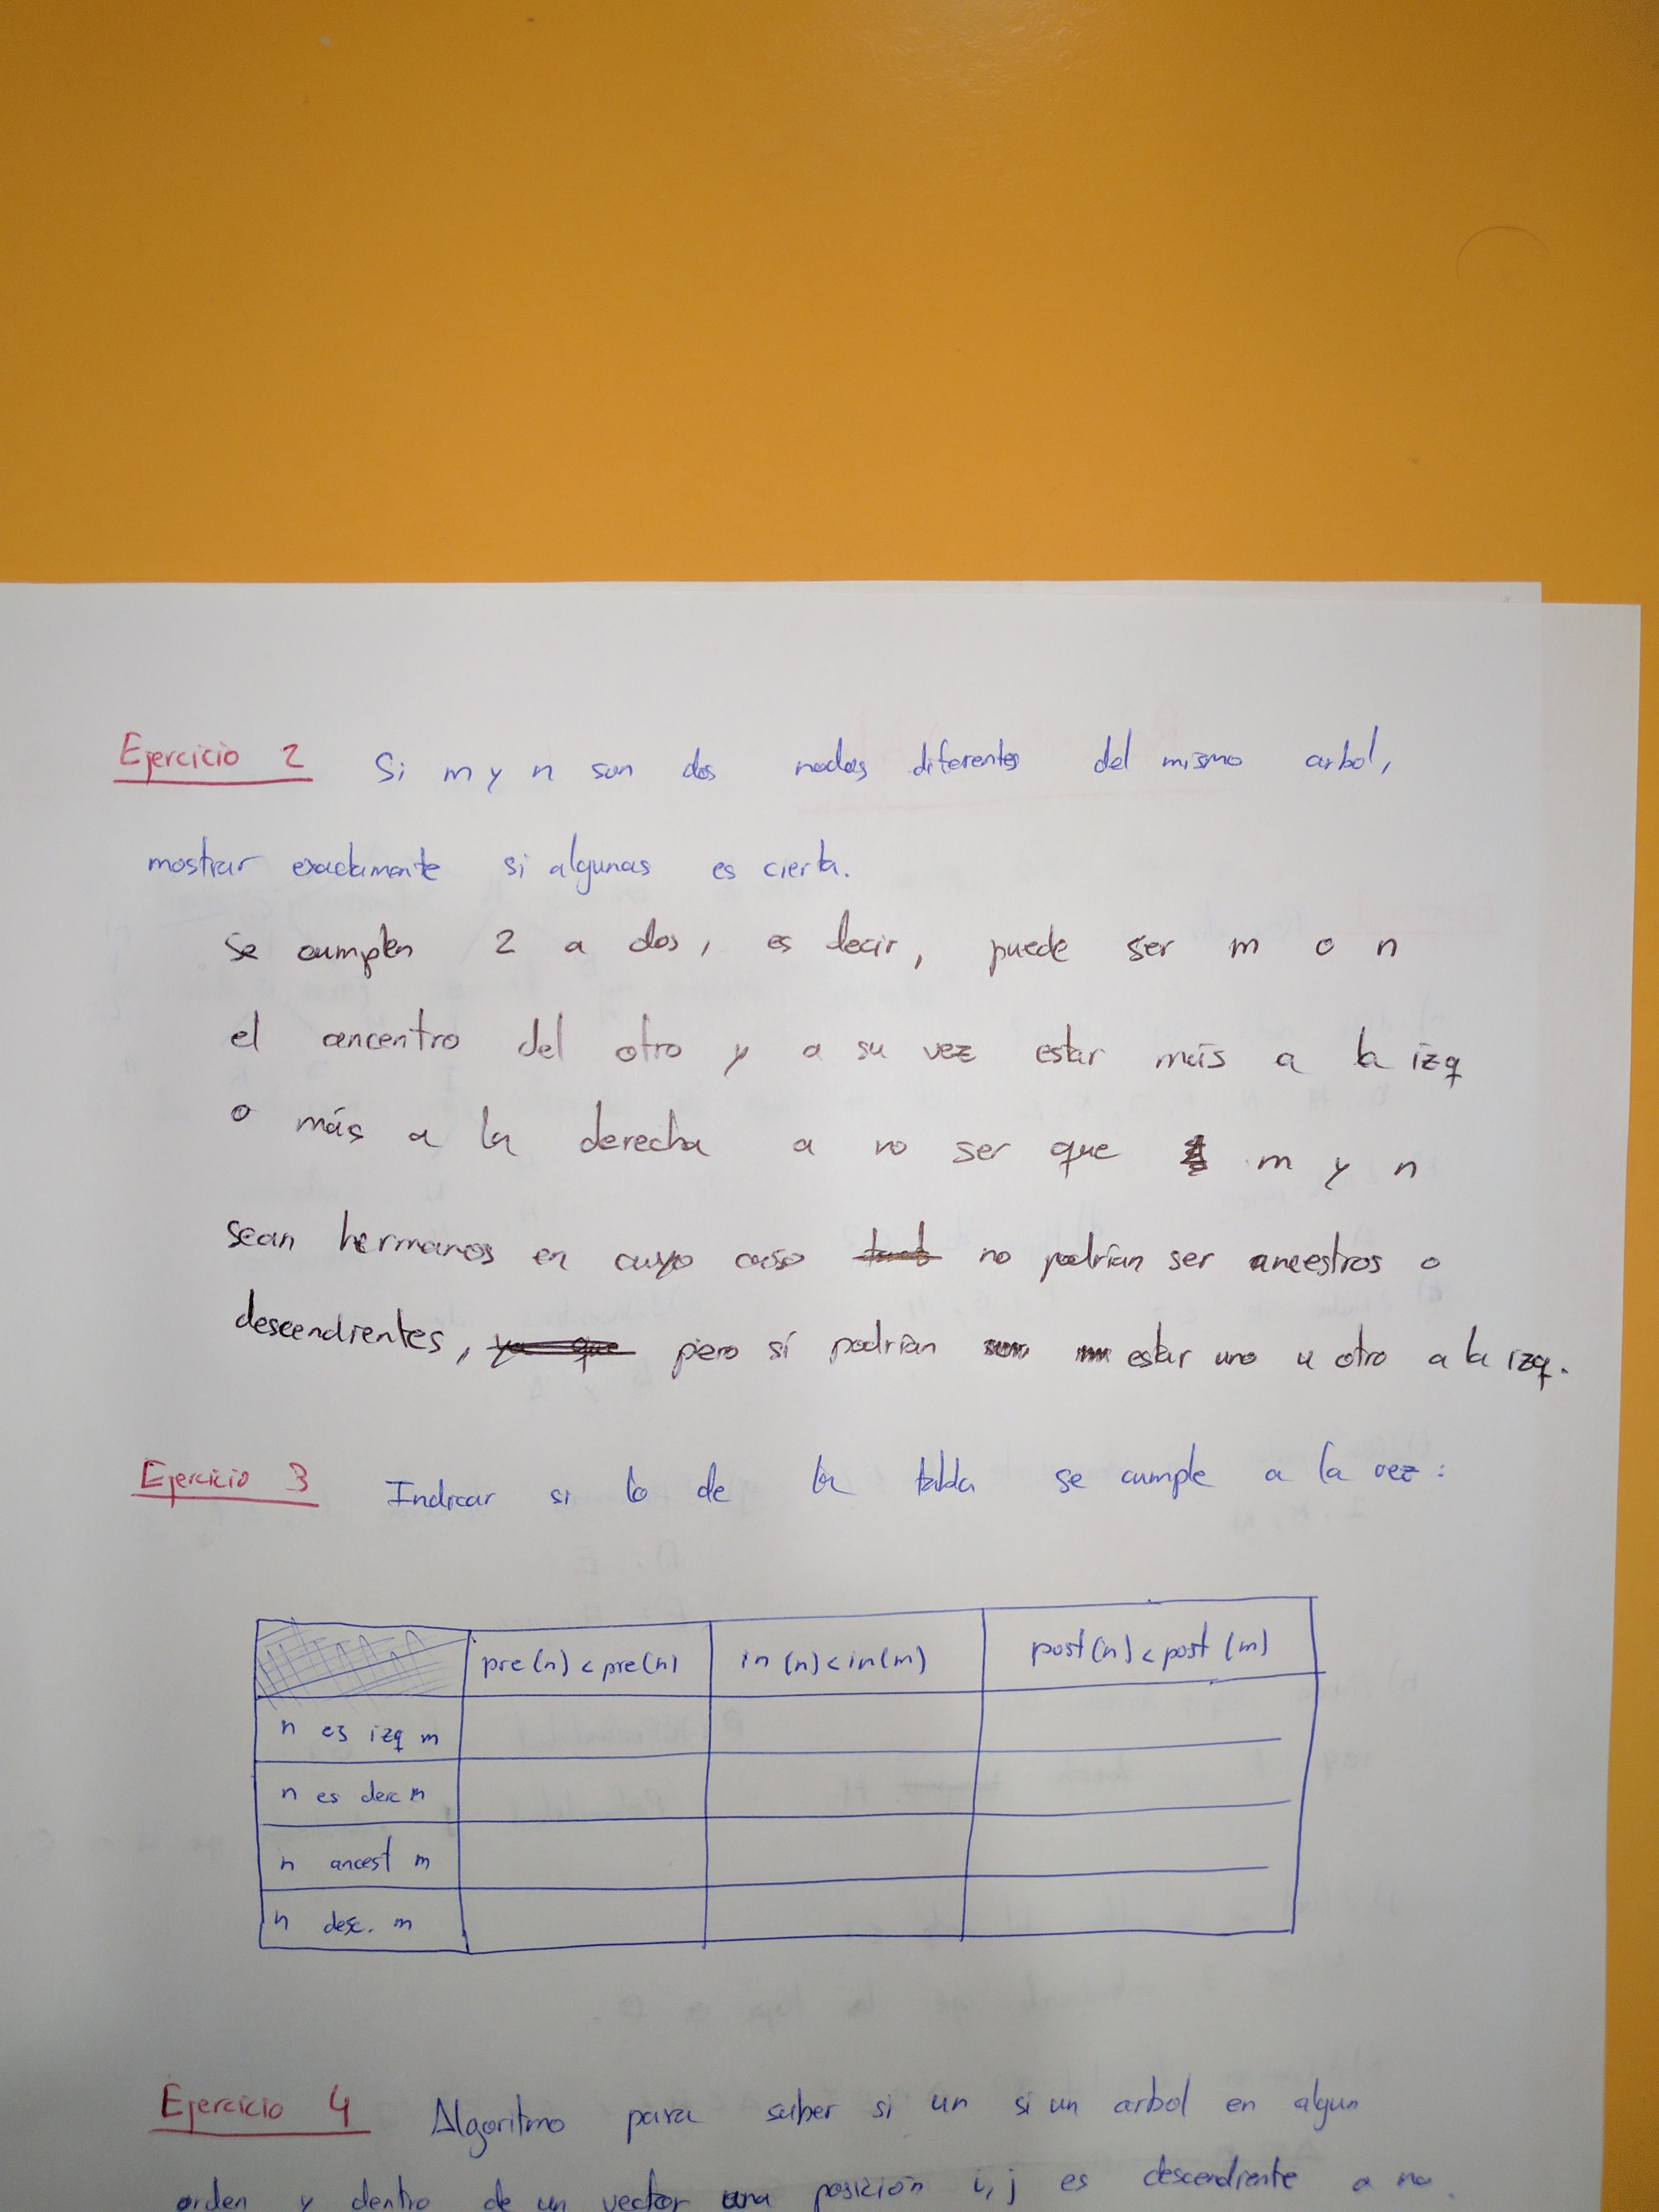 Ejercicio 2 Si m y n son dos nodos diferentes del mismo arbol,
mostrar exactamente si algunas es cierta.
Se cumplen 2 a dos, es decir, puede ser m o n
el ancentro del otro y a su vez estar más a la izq
o más a la derecha a no ser que m y n
sean hermanos en cuyo caso no podrían ser ancestros o
descendientes, ya que pero sí podrían estar uno u otro a la izq.
Ejercicio 3 Indicar si lo de la tabla se cumple a la vez:
pre(n) < pre(n) in (n) < in(m) post(n) < post (m)
n es izq m
n es derc m
n ancest m
n desc. m
Ejercicio 4 Algoritmo para saber si un si un arbol en algun
orden y dentro de un vector una posición i, j es descendiente o no.